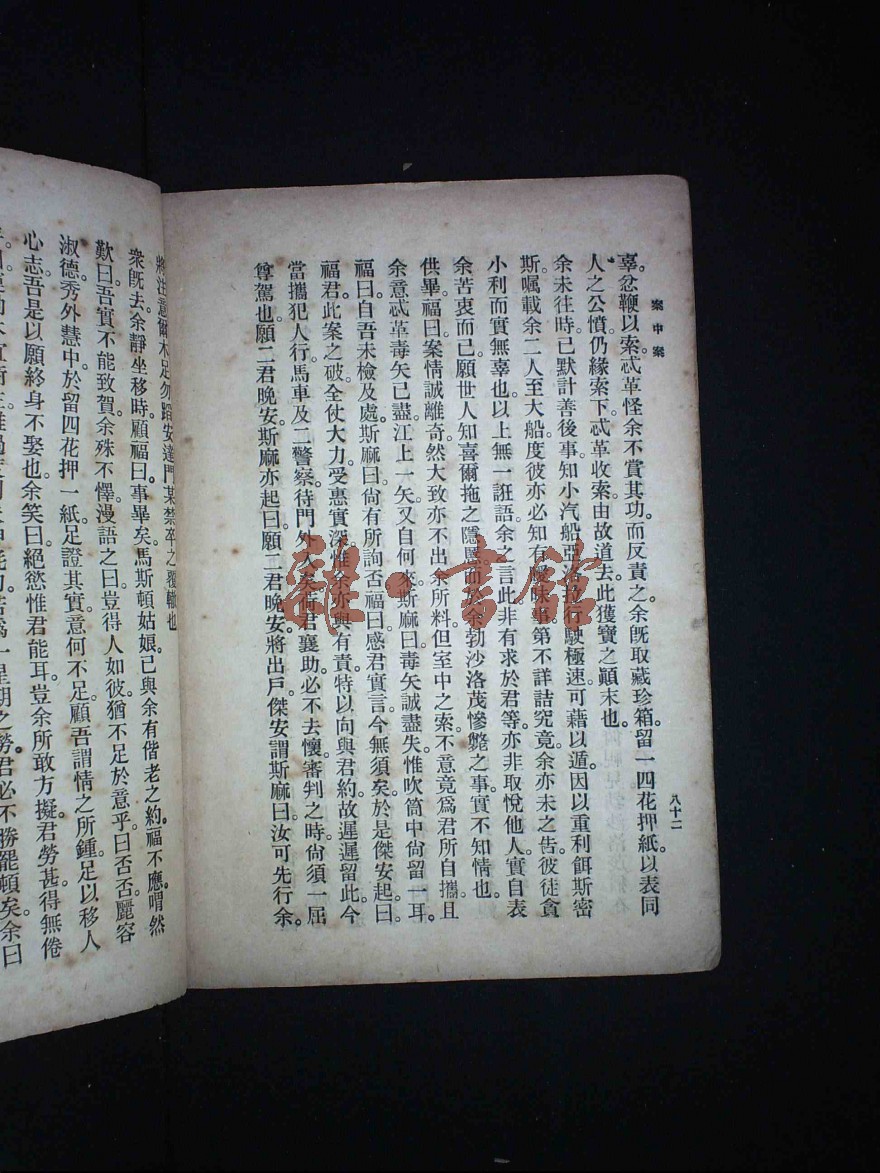 案中案
八十二
辜忿鞭以索忒革怪余不賞其功而反責之余旣取藏珍箱留一四花押紙以表同
人之公憤仍緣索下忒革收索由故道去此獲寶之顚末也
余未往時已默計善後事知小汽船亞洛拉行駛極速可藉以遁因以重利餌斯密
斯囑載余二人至大船度彼亦必知有曖昧事第不詳詰究竟余亦未之告彼徒貪
小利而實無辜也以上無一誑語余之言此非有求於君等亦非取悅他人實自表
余苦衷而已願世人知喜爾拖之隱慝而於余勃沙洛茂慘斃之事實不知情也
供畢福曰案情誠離奇然大致亦不出余所料但室中之索不意竟爲君所自攜且
余意忒革毒矢已盡江上一矢又自何來斯麻曰毒矢誠盡失惟吹筒中尙留一耳
福曰自吾未檢及處斯麻曰尙有所詢否福曰感君實言今無須矣於是傑安起曰
福君此案之破全仗大力受惠實深惟余亦與有責特以向與君約故遲遲留此今
當攜犯人行馬車及二警察待門外久矣荷君襄助必不去懷審判之時尙須一屈
尊駕也願二君晚安斯麻亦起曰願二君晚安將出戶傑安謂斯麻曰汝可先行余
將注意爾木足勿蹈安達門某禁卒之覆轍也
衆旣去余靜坐移時顧福曰事畢矣馬斯頓姑娘已與余有偕老之約福不應喟然
歎曰吾實不能致賀余殊不懌漫語之曰豈得人如彼猶不足於意乎曰否否麗容
淑德秀外慧中於留四花押一紙足證其實意何不足顧吾謂情之所鍾足以移人
心志吾是以願終身不娶也余笑曰絕慾惟君能耳豈余所敢方擬君勞甚得無倦
爲一星期之勞君必不勝罷頓矣余曰
雜·書館